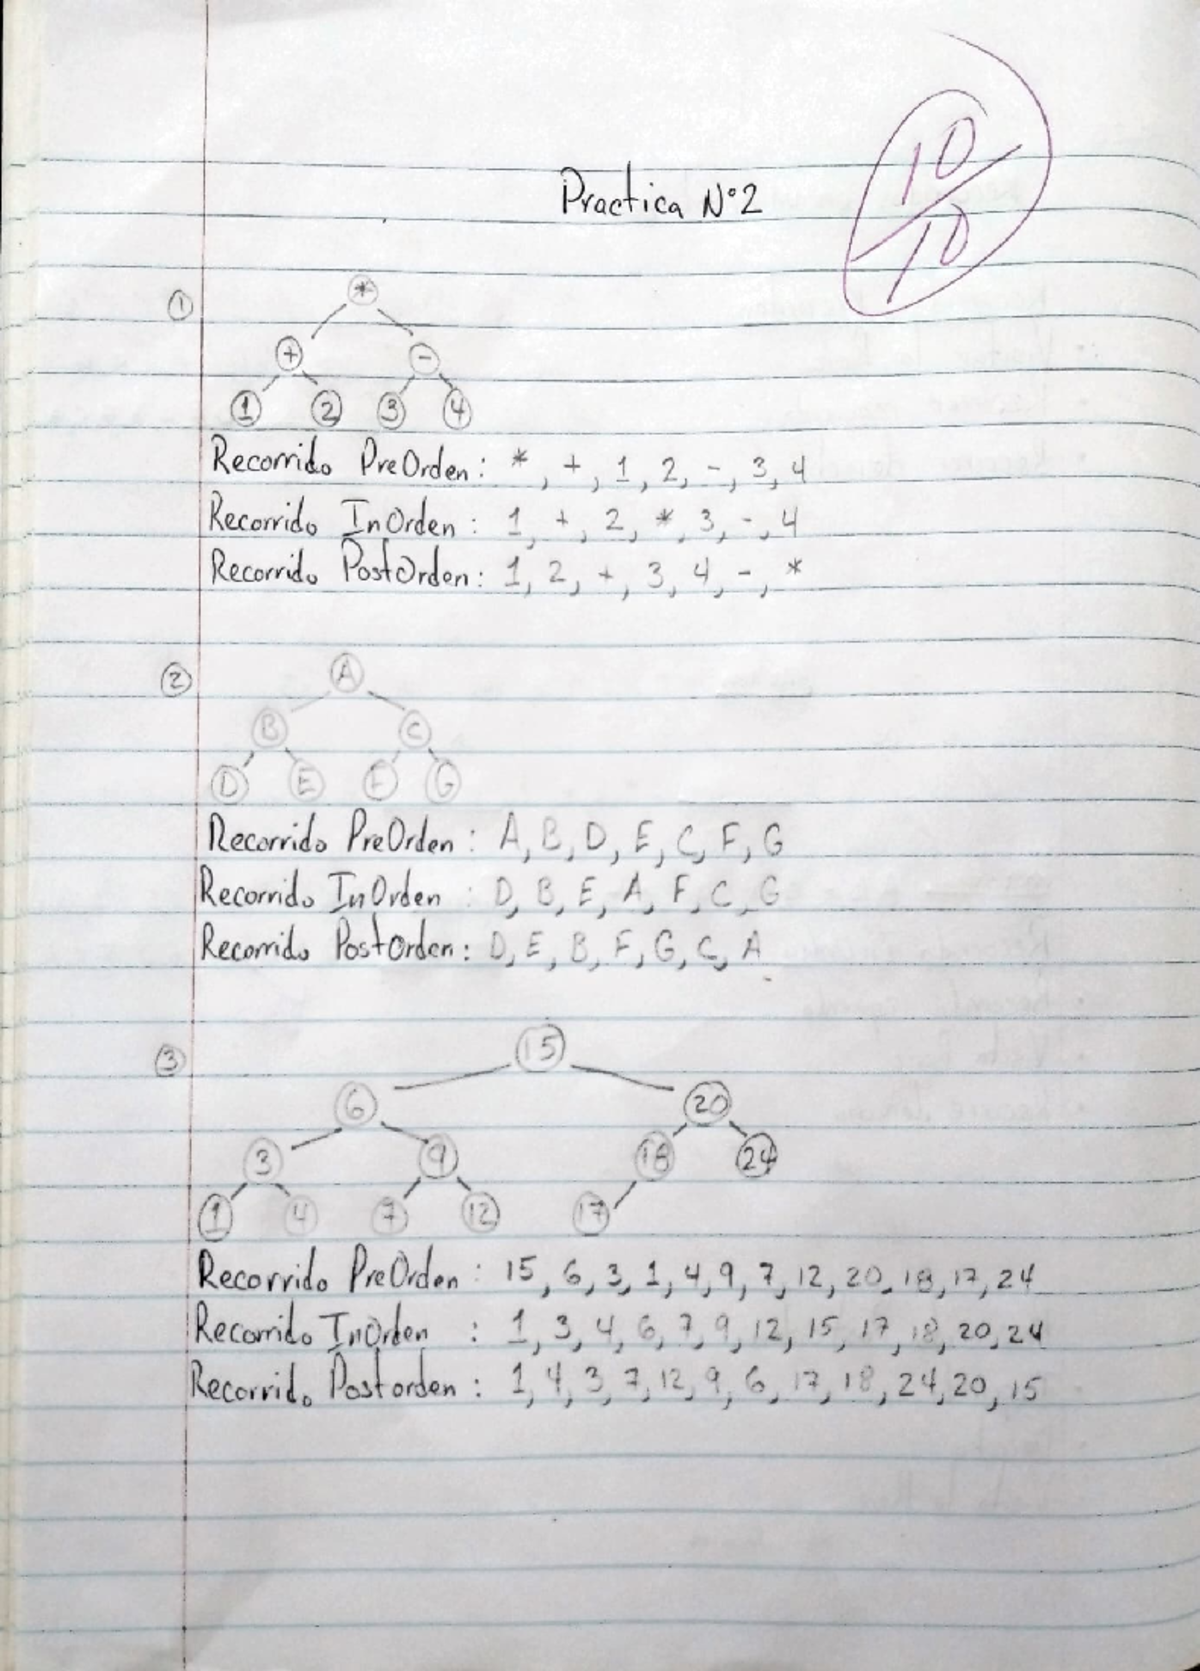 10/10
Practica N°2
①
*
+ -
1 2 3 4
Recorrido PreOrden: *, +, 1, 2, -, 3, 4
Recorrido InOrden: 1, +, 2, *, 3, -, 4
Recorrido PostOrden: 1, 2, +, 3, 4, -, *
②
A
B C
D E F G
Recorrido PreOrden: A, B, D, E, C, F, G
Recorrido InOrden: D, B, E, A, F, C, G
Recorrido PostOrden: D, E, B, F, G, C, A
③
15
6 20
3 9 18 24
1 4 7 12 17
Recorrido PreOrden: 15, 6, 3, 1, 4, 9, 7, 12, 20, 18, 17, 24
Recorrido InOrden: 1, 3, 4, 6, 7, 9, 12, 15, 17, 18, 20, 24
Recorrido Postorden: 1, 4, 3, 7, 12, 9, 6, 17, 18, 24, 20, 15